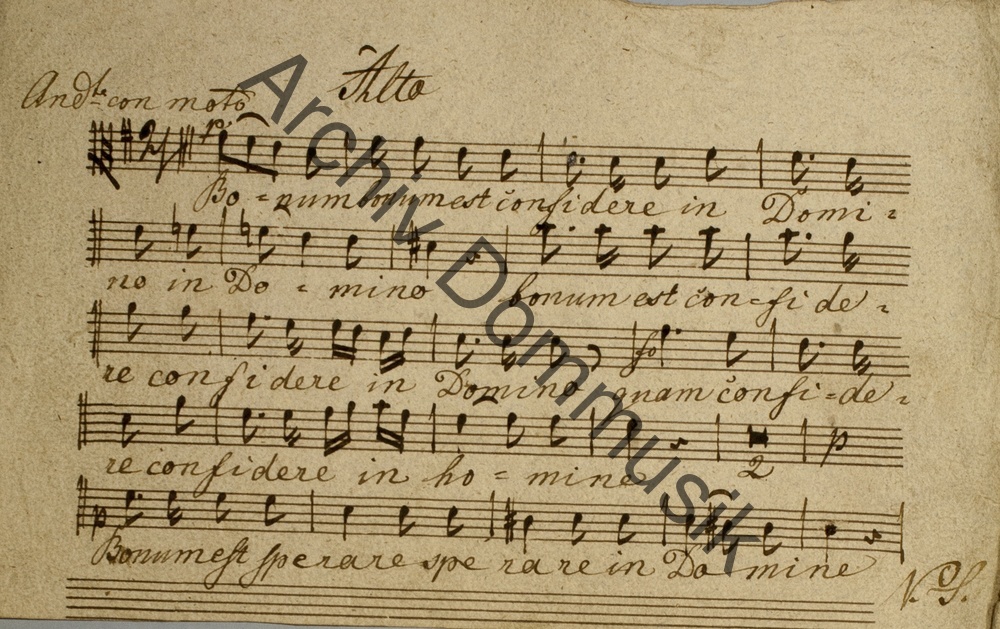 Alto
And.te con moto
p.
Bo - num bonum est confidere in Domi =
no in Do - mino bonum est con = fi de =
re confidere in Domino quam confi = de =
re confidere in ho = mine
2
p
Bonum est sperare spe rare in Do mine
V. S.
Archiv Dommusik